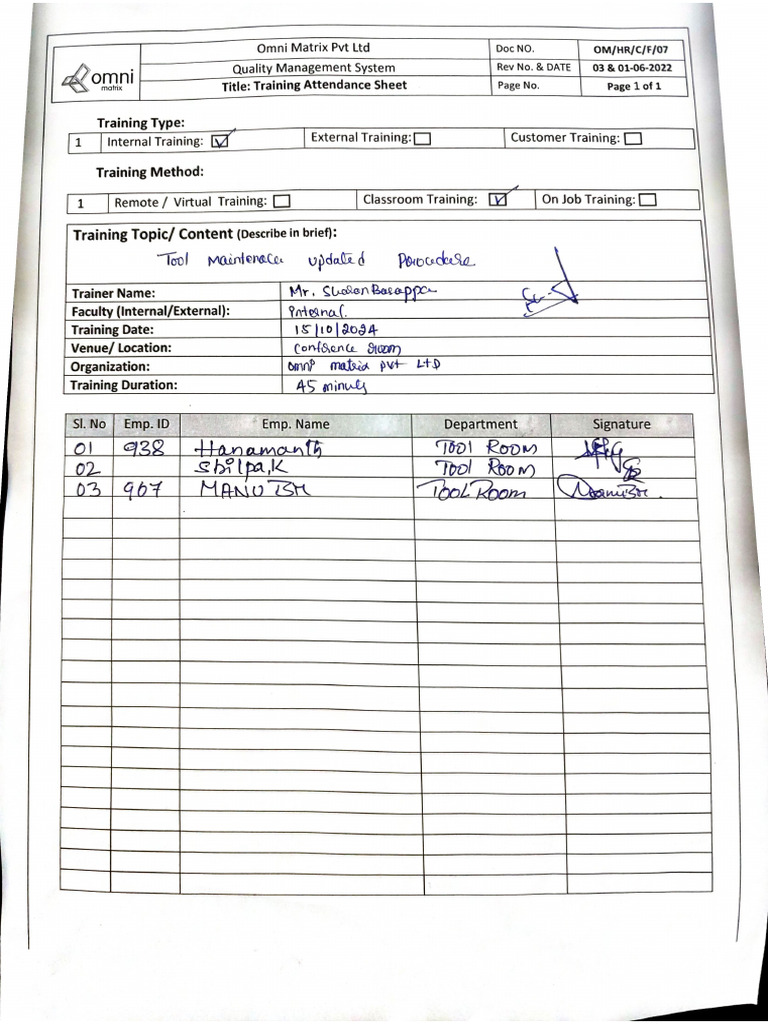 omni
matrix
Omni Matrix Pvt Ltd
Quality Management System
Title: Training Attendance Sheet
Doc NO. OM/HR/C/F/07
Rev No. & DATE 03 & 01-06-2022
Page No. Page 1 of 1
Training Type:
1 Internal Training: ☑ External Training: ☐ Customer Training: ☐
Training Method:
1 Remote / Virtual Training: ☐ Classroom Training: ☑ On Job Training: ☐
Training Topic/ Content (Describe in brief):
Tool Maintenace updated Porocedure
Trainer Name: Mr. Sharan Basappa
Faculty (Internal/External): Internal.
Training Date: 15/10/2024
Venue/ Location: Conference room
Organization: omni matrix pvt LTD
Training Duration: 45 minuts
Sl. No Emp. ID Emp. Name Department Signature
01 938 Hanamanth Tool Room
02 Shilpa.K Tool Room
03 907 MANU BM TOOL Room ManuBM.